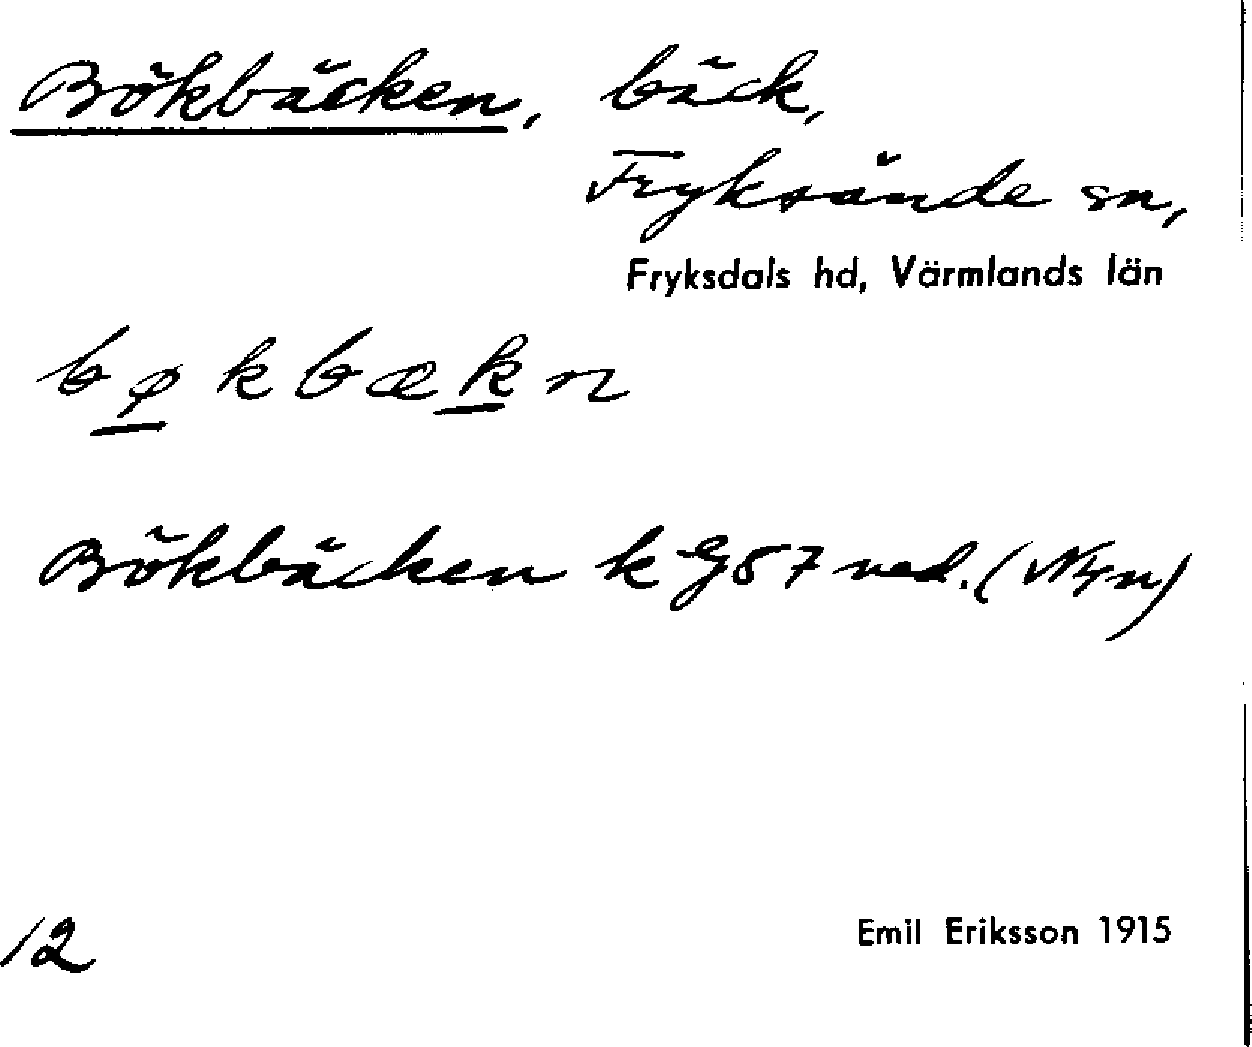 Bökbäcken, bäck,
Fryksände sn,
Fryksdals hd, Värmlands län
bøkbækn
Bökbäcken k
12
Emil Eriksson 1915